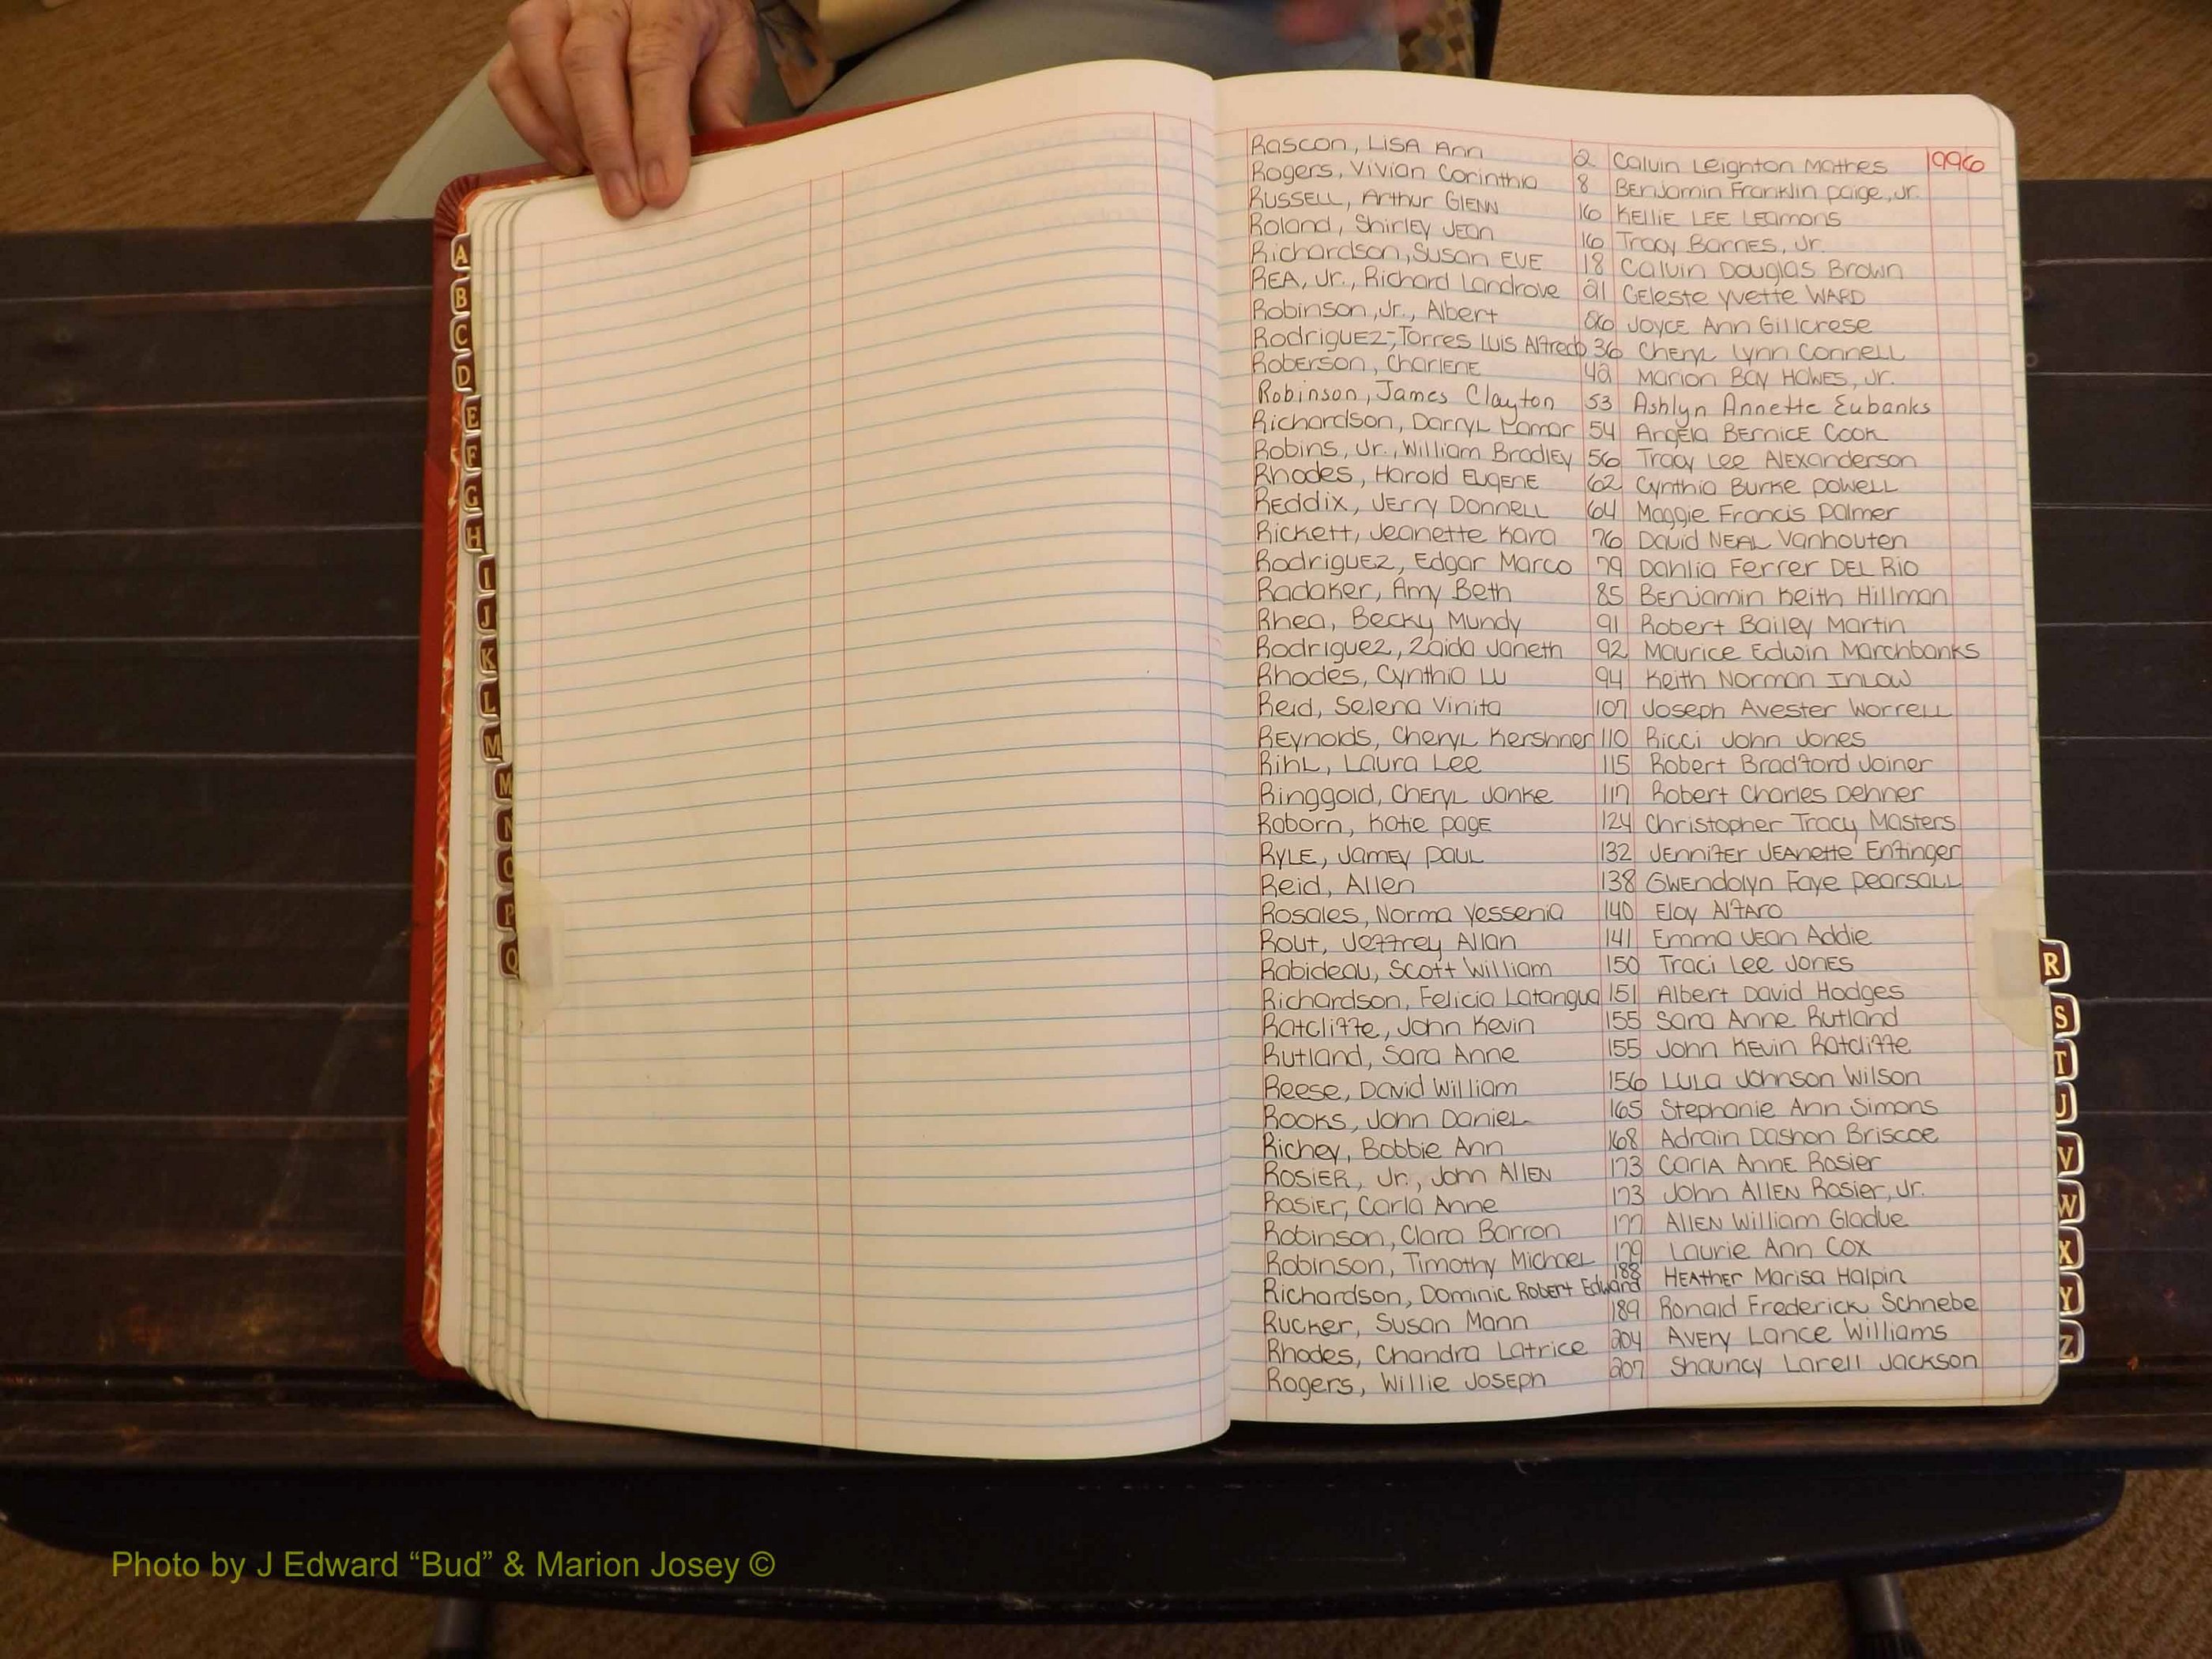 A
B
C
D
E
F
G
H
I
J
K
L
M
M
N
O
P
Q
Rascon, Lisa Ann 2 Calvin Leighton Mathes 1996
Rogers, Vivian Corinthia 8 Benjamin Franklin Paige, Jr.
Russell, Arthur Glenn 16 Kellie Lee Leamons
Roland, Shirley Jean 16 Tracy Barnes, Jr.
Richardson, Susan Eve 18 Calvin Douglas Brown
Rea, Jr., Richard Landrove 21 Celeste Yvette Ward
Robinson, Jr., Albert Joyce Ann Gillcrese
Rodriguez-Torres Luis Alfredo 36 Cheryl Lynn Connell
Roberson, Charlene 42 Marion Bay Howes, Jr.
Robinson, James Clayton 53 Ashlyn Annette Eubanks
Richardson, Darryl Lamar 54 Angela Bernice Cook
Robins, Jr., William Bradley 56 Tracy Lee Alexanderson
Rhodes, Harold Eugene 62 Cynthia Burke Powell
Reddix, Jerry Donnell 64 Maggie Francis Palmer
Rickett, Jeanette Kara 76 David Neal Vanhouten
Rodriguez, Edgar Marco 79 Dahlia Ferrer Del Rio
Radaker, Amy Beth 85 Benjamin Keith Hillman
Rhea, Becky Mundy 91 Robert Bailey Martin
Rodriguez, Zaida Janeth 92 Maurice Edwin Marchbanks
Rhodes, Cynthia Lu 94 Keith Norman Inlow
Reid, Selena Vinita 107 Joseph Avester Worrell
Reynolds, Cheryl Kershner 110 Ricci John Jones
Rihl, Laura Lee 115 Robert Bradford Joiner
Ringgold, Cheryl Janke 117 Robert Charles Dehner
Raborn, Katie Page 124 Christopher Tracy Masters
Ryle, Jamey Paul 132 Jennifer Jeanette Enfinger
Reid, Allen 138 Gwendolyn Faye Pearsall
Rosales, Norma Yessenia 140 Eloy Alfaro
Rout, Jeffrey Allan 141 Emma Jean Addie
Rabideau, Scott William 150 Traci Lee Jones
Richardson, Felicia Latangua 151 Albert David Hodges
Ratcliffe, John Kevin 155 Sara Anne Rutland
Rutland, Sara Anne 155 John Kevin Ratcliffe
Reese, David William 156 Lula Johnson Wilson
Rooks, John Daniel 165 Stephanie Ann Simons
Richey, Bobbie Ann 168 Adrain Dashon Briscoe
Rosier, Jr., John Allen 173 Carla Anne Rosier
Rosier, Carla Anne 173 John Allen Rosier, Jr.
Robinson, Clara Barron 177 Allen William Gladue
Robinson, Timothy Michael 179 Laurie Ann Cox
Richardson, Dominic Robert Edward 188 Heather Marisa Halpin
Rucker, Susan Mann 189 Ronald Frederick Schnebe
Rhodes, Chandra Latrice 204 Avery Lance Williams
Rogers, Willie Joseph 207 Shauncy Larell Jackson
R
S
T
U
V
W
X
Y
Z
Photo by J Edward “Bud” & Marion Josey ©